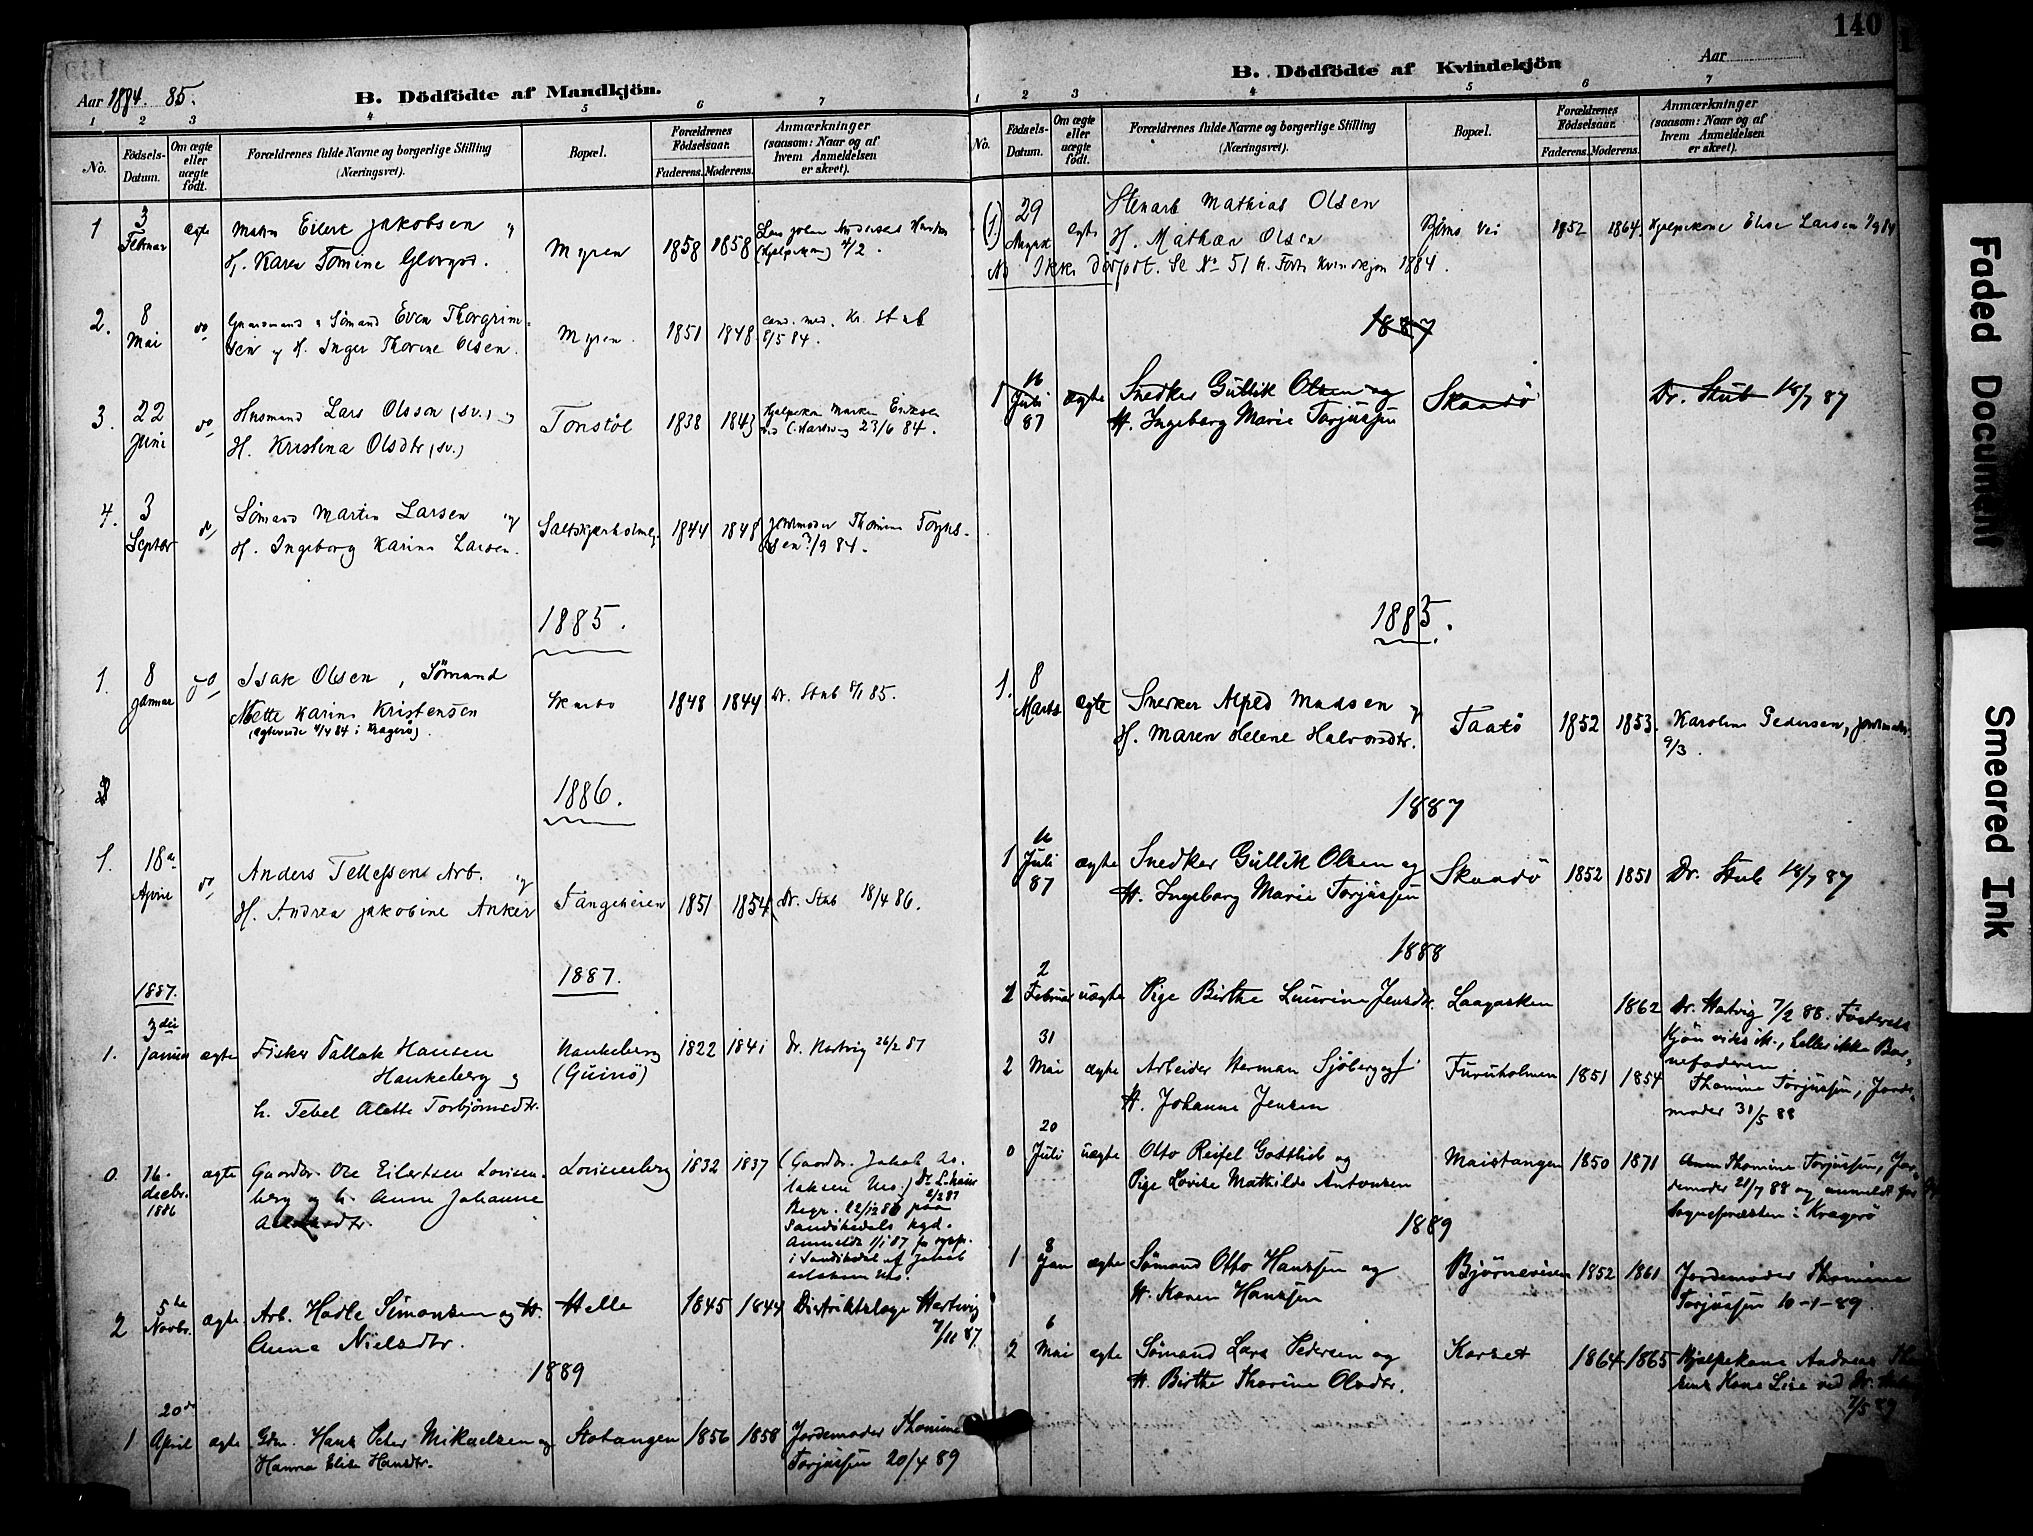 140
Aar 1884. 85.
B. Dödfödte af Mandkjön.
1 2 3 4 5 6 7
No.
Födsels-Datum.
Om ægte eller uægte födt.
Forældrenes fulde Navne og borgerlige Stilling
(Næringsvei).
Bopæl.
Forældrenes Födselsaar.
Faderens. Moderens.
Anmærkninger
(saasom: Naar og af
hvem Anmeldelsen
er skeet).
1 3 Februar ægte Eilert Jakobsen og
H. Karen Tomine Myren 1858 1858
2. 8 Mai do Sømand Even Thorgrim-
sen og H. Inger Thorine Olsen. Myren 1851 1848 cand. med. Kr. Stub
8/5 84.
3. 22 Juni do Husmand Lars Olsson (sv.) og
H. Kristina Olsdtr (sv.) Tonstöl 1838 1843 23/6 84.
4. 3 Septbr do Sømand Martin Larsen og
H. Ingeborg Karine Larsen. 1844 1848 Jordmoder Thomine
/9 84.
1885.
1. 8 Januar Isak Olsen, Sømand
Mette Karine Kristensen
Skaabo 1848 1844 Dr. Stub 8/1 85.
1886.
1. 18de April do Anders Tellefsen Arb. og
H. Andrea Jakobine Anker Tangeheien 1851 1854 Dr. Stub 18/4 86.
1887. 1887.
1. 3die Januar ægte Fisker Tallak Hansen
Haukeberg og
h. Tebel Alette Torbjørnsdtr. Haukeberg
(Gumø) 1822 1841 Dr. Hartvig 26/2 87
0. 16. decbr. 1886 ægte Gaardbr. Ole Eilertsen Lovisen-
berg og h. Anne Johanne
Lovisenberg 1832 1837 (Gaardbr. Jakob
Begr. 22/12 86 paa
Sandökedals kgd.
Anmeldt 1/1 87
i Sandökedal af Jakob
2 5te Novbr. ægte Arb. Hadle Simonsen og H.
Anne Nielsdtr. Helle 1845 1844 Distriktslæge Hartvig
7/11 87.
1889
1 20de April ægte Gdm. Hans Peter Mikaelsen og
Hanna Elise Hansdtr. Stotangen 1856 1858 Jordemoder Thomine
Torjussen 20/4 89
B. Dödfödte af Kvindekjön
Aar
1 2 3 4 5 6 7
No.
Födsels-Datum.
Om ægte eller uægte födt.
Forældrenes fulde Navne og borgerlige Stilling
(Næringsvei).
Bopæl.
Forældrenes Födselsaar.
Faderens. Moderens.
Anmærkninger
(saasom: Naar og af
hvem Anmeldelsen
er skeet).
(1.) 29 August ægte Stenarb Mathias Olsen
H. Mathea Olsen 1852 1864 Hjelpekone Elise Larsen
Ikke dødfødt. Se No 51 Kvindekjøn 1884.
1887
1 16 Juli 87 ægte Snedker Gullik Olsen og
H. Ingeborg Marie Torjussen Skaadö Dr. Stub 18/7 87
1885.
1. 8 Marts ægte Snerker Alfred Madsen og
H. Maren Helene Halvorsdtr. Taatö 1852 1853. Karoline Pedersen, Jordmoder.
9/3.
1887
1 16 Juli 87 ægte Snedker Gullik Olsen og
H. Ingeborg Marie Torjussen Skaadö 1852 1851 Dr. Stub 18/7 87
1888
1 2 Februar uægte Pige Birthe Laurine Jensdtr. 1862 Dr. Hartvig 7/2 88. Fosterets
Kjön vides ik., heller ikke Bar-
nefaderen.
2 31 Mai ægte Arbeider Herman Sjöberg og
H. Johanne Jensen Furuholmen 1851 1854 Thomine Torjussen, Jorde-
moder 31/5 88
0 20 Juli uægte Otto Gottlieb og
Pige Lovise Mathilde Antonsen Maistangen 1850 1871 Thomine Torjussen, Jor-
demoder 21/7 88 og anmeldt for
Sognepræsten i Kragerö
1889
1 8 Jan ægte Sömand Otto Hanssen og
H. Karen Hanssen Björneveien 1852 1861 Jordemoder Thomine
Torjussen 10-1-89.
2 6 Mai ægte Sömand Lars Pedersen og
H. Birthe Thorine Olsdtr. Korset 1864 1865 Hjelpekone Andreas
Kone Lise ved Dr.
7/5 89
Faded Document
Smeared Ink